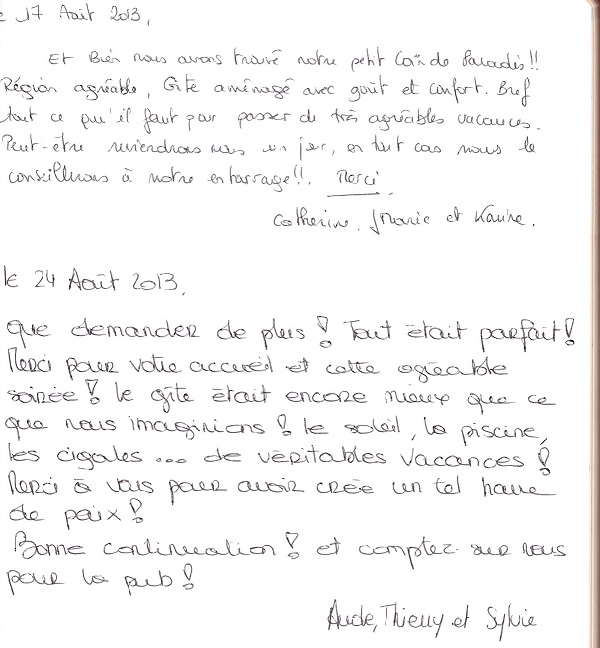 le 17 Août 2013,
Et Bien nous avons trouvé notre petit Coin de Paradis!!
Région agréable, Gîte aménagé avec goût et confort. Bref
tout ce qu'il faut pour passer de très agréables vacances.
Peut-être reviendrons nous un jour, en tout cas nous le
conseillerons à notre entourage!!. Merci
Catherine, J Marie et Karine.
le 24 Août 2013,
Que demander de plus! Tout était parfait!
Merci pour votre accueil et cette agréable
soirée! le gîte était encore mieux que ce
que nous imaginions! le soleil, la piscine,
les cigales... de véritables vacances!
Merci à vous pour avoir crée un tel havre
de paix!
Bonne continuation! et comptez sur nous
pour la pub!
Aude, Thierry et Sylvie